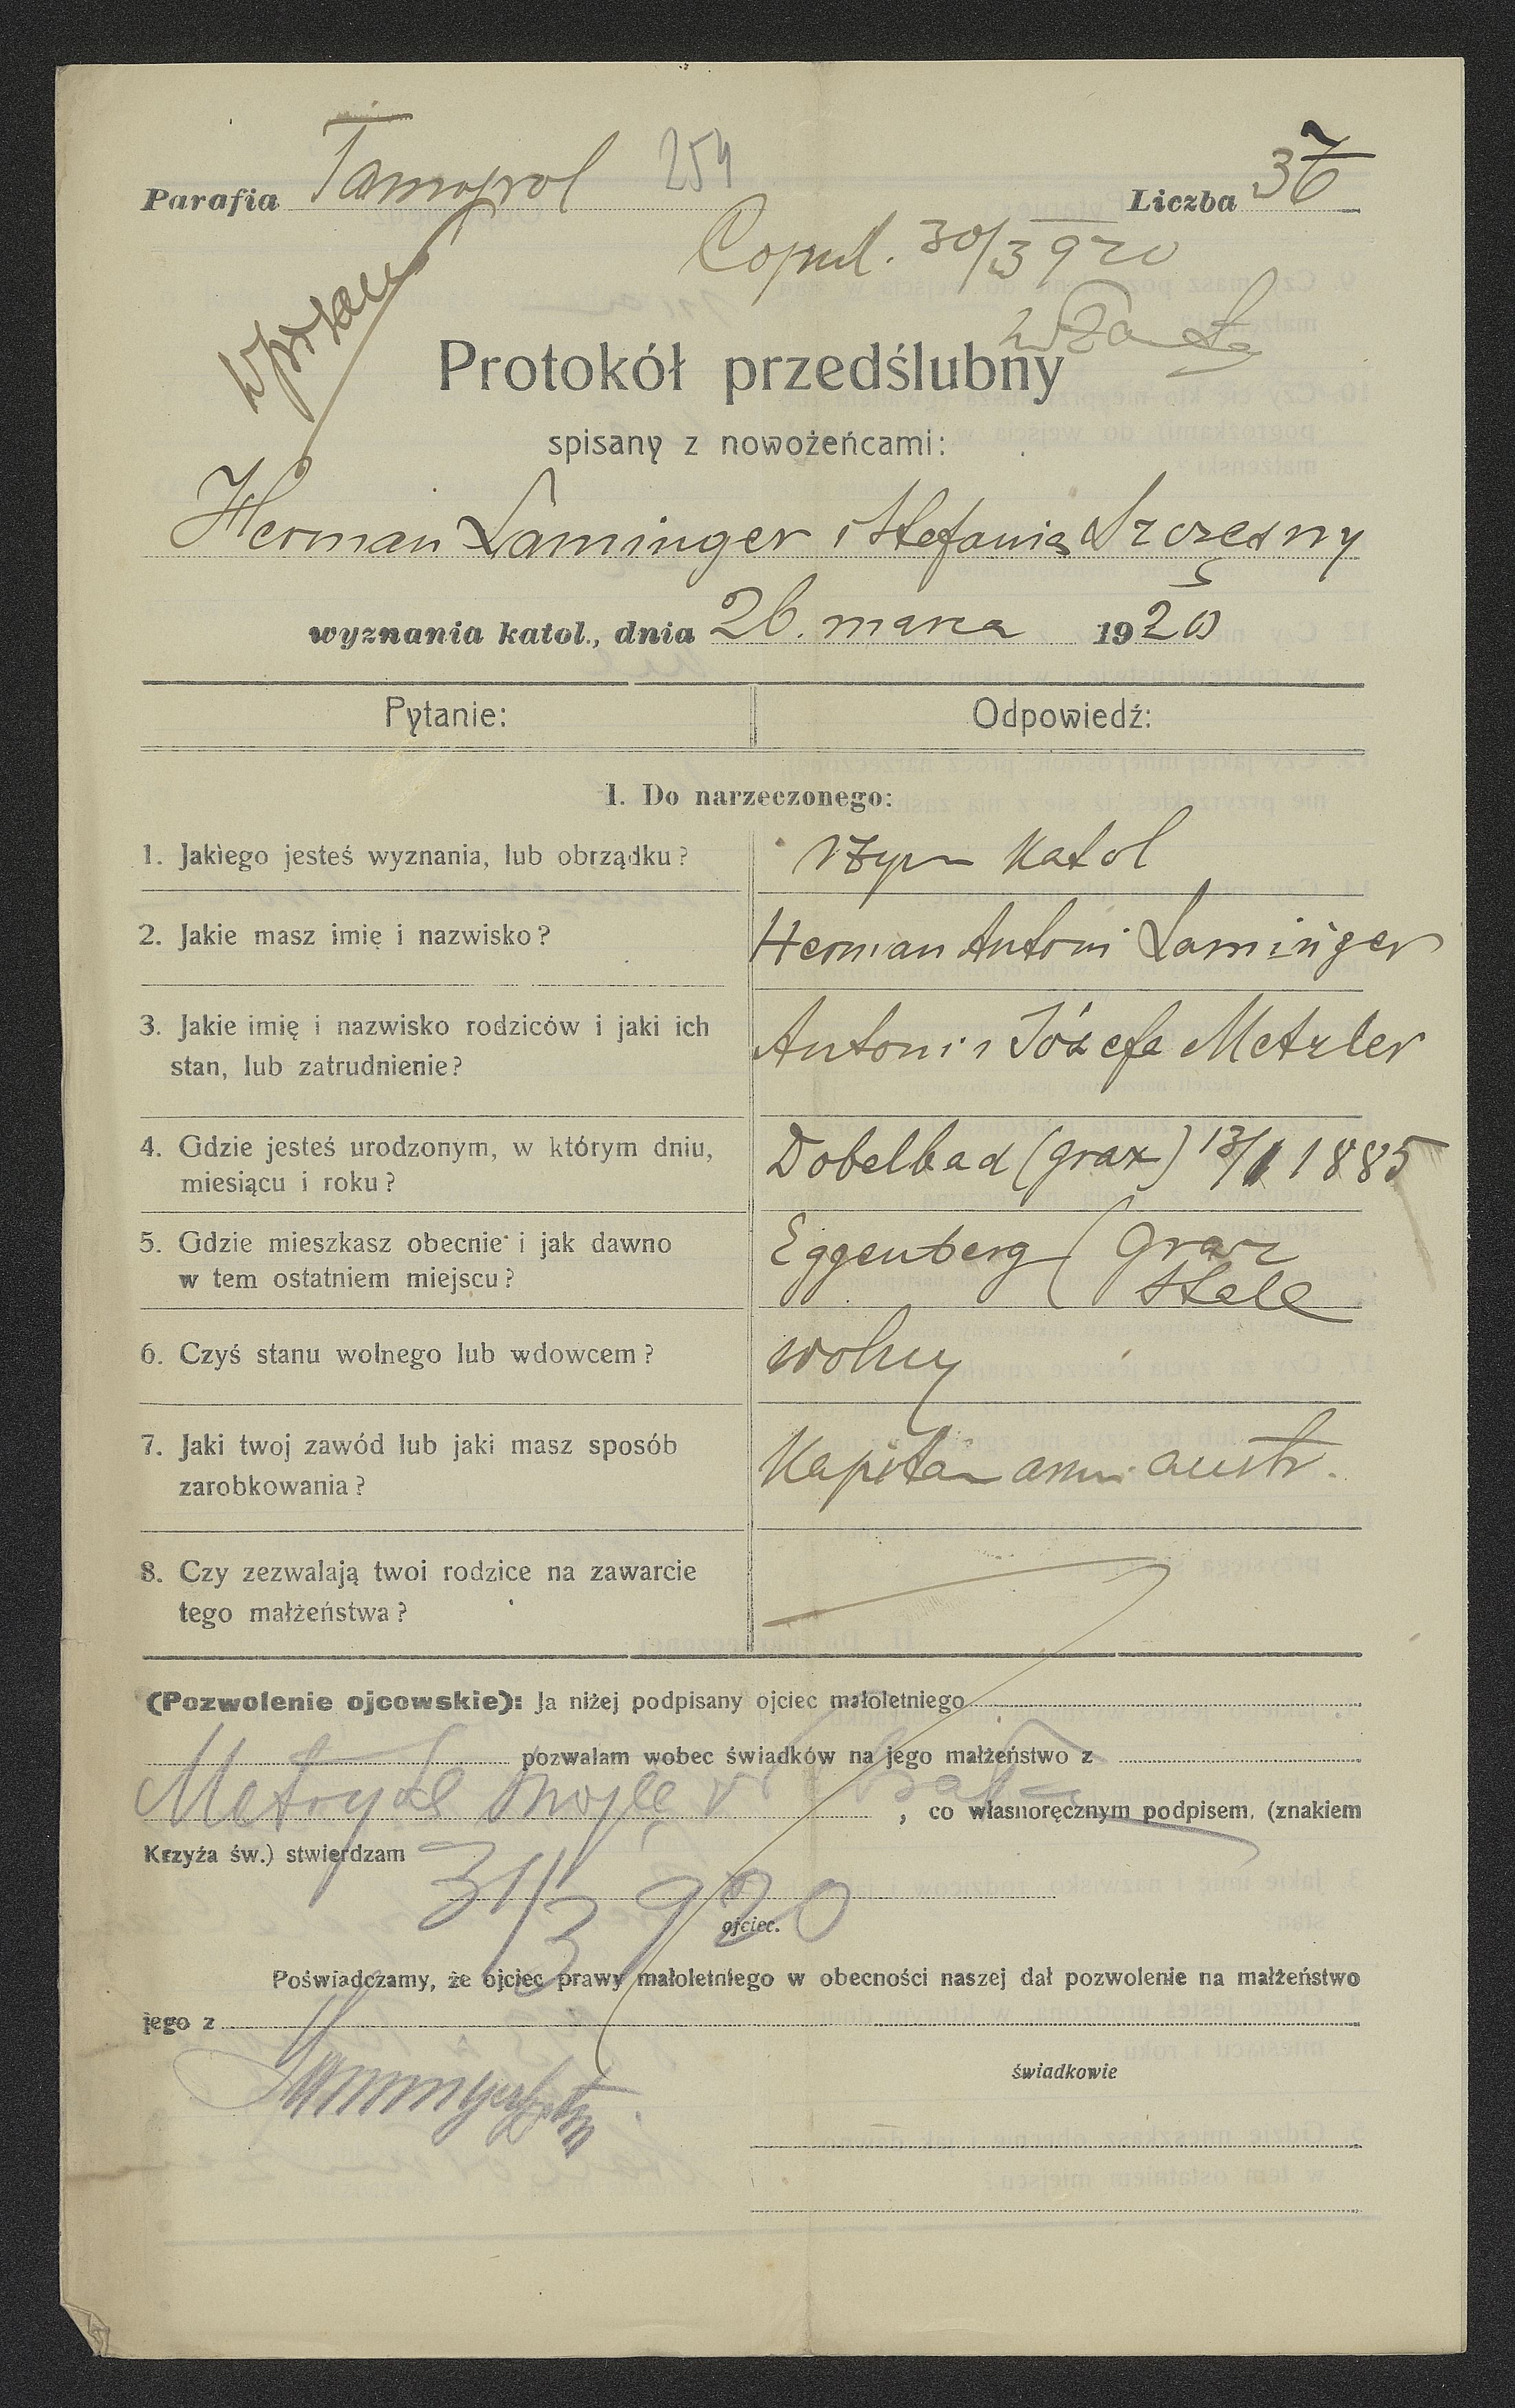 Parafia Tarnopol 254 Liczba 37
Copul. 30/3 920
wpisany
Protokół przedślubny
spisany z nowożeńcami:
Herman Laminger i Stefania Szczęsny
wyznania katol., dnia 26. marca 1920
Pytanie: Odpowiedź:
I. Do narzeczonego:
1. Jakiego jesteś wyznania, lub obrządku? rzym katol
2. Jakie masz imię i nazwisko? Herman Antoni Laminger
3. Jakie imię i nazwisko rodziców i jaki ich Antoni i Józefa Metzler
stan, lub zatrudnienie?
4. Gdzie jesteś urodzonym, w którym dniu, Dobelbad (Graz) 13/1 1885
miesiącu i roku?
5. Gdzie mieszkasz obecnie i jak dawno Eggenberg (Graz
w tem ostatniem miejscu? stale
6. Czyś stanu wolnego lub wdowcem? wolny
7. Jaki twoj zawód lub jaki masz sposób Kapitan armi austr.
zarobkowania?
8. Czy zezwalają twoi rodzice na zawarcie
tego małżeństwa?
(Pozwolenie ojcowskie): Ja niżej podpisany ojciec małoletniego
pozwalam wobec świadków na jego małżeństwo z
Metrykę moję
, co własnoręcznym podpisem, (znakiem
Krzyża św.) stwierdzam
31/3 920
ojciec.
Poświadczamy, że ojciec prawy małoletniego w obecności naszej dał pozwolenie na małżeństwo
jego z
świadkowie